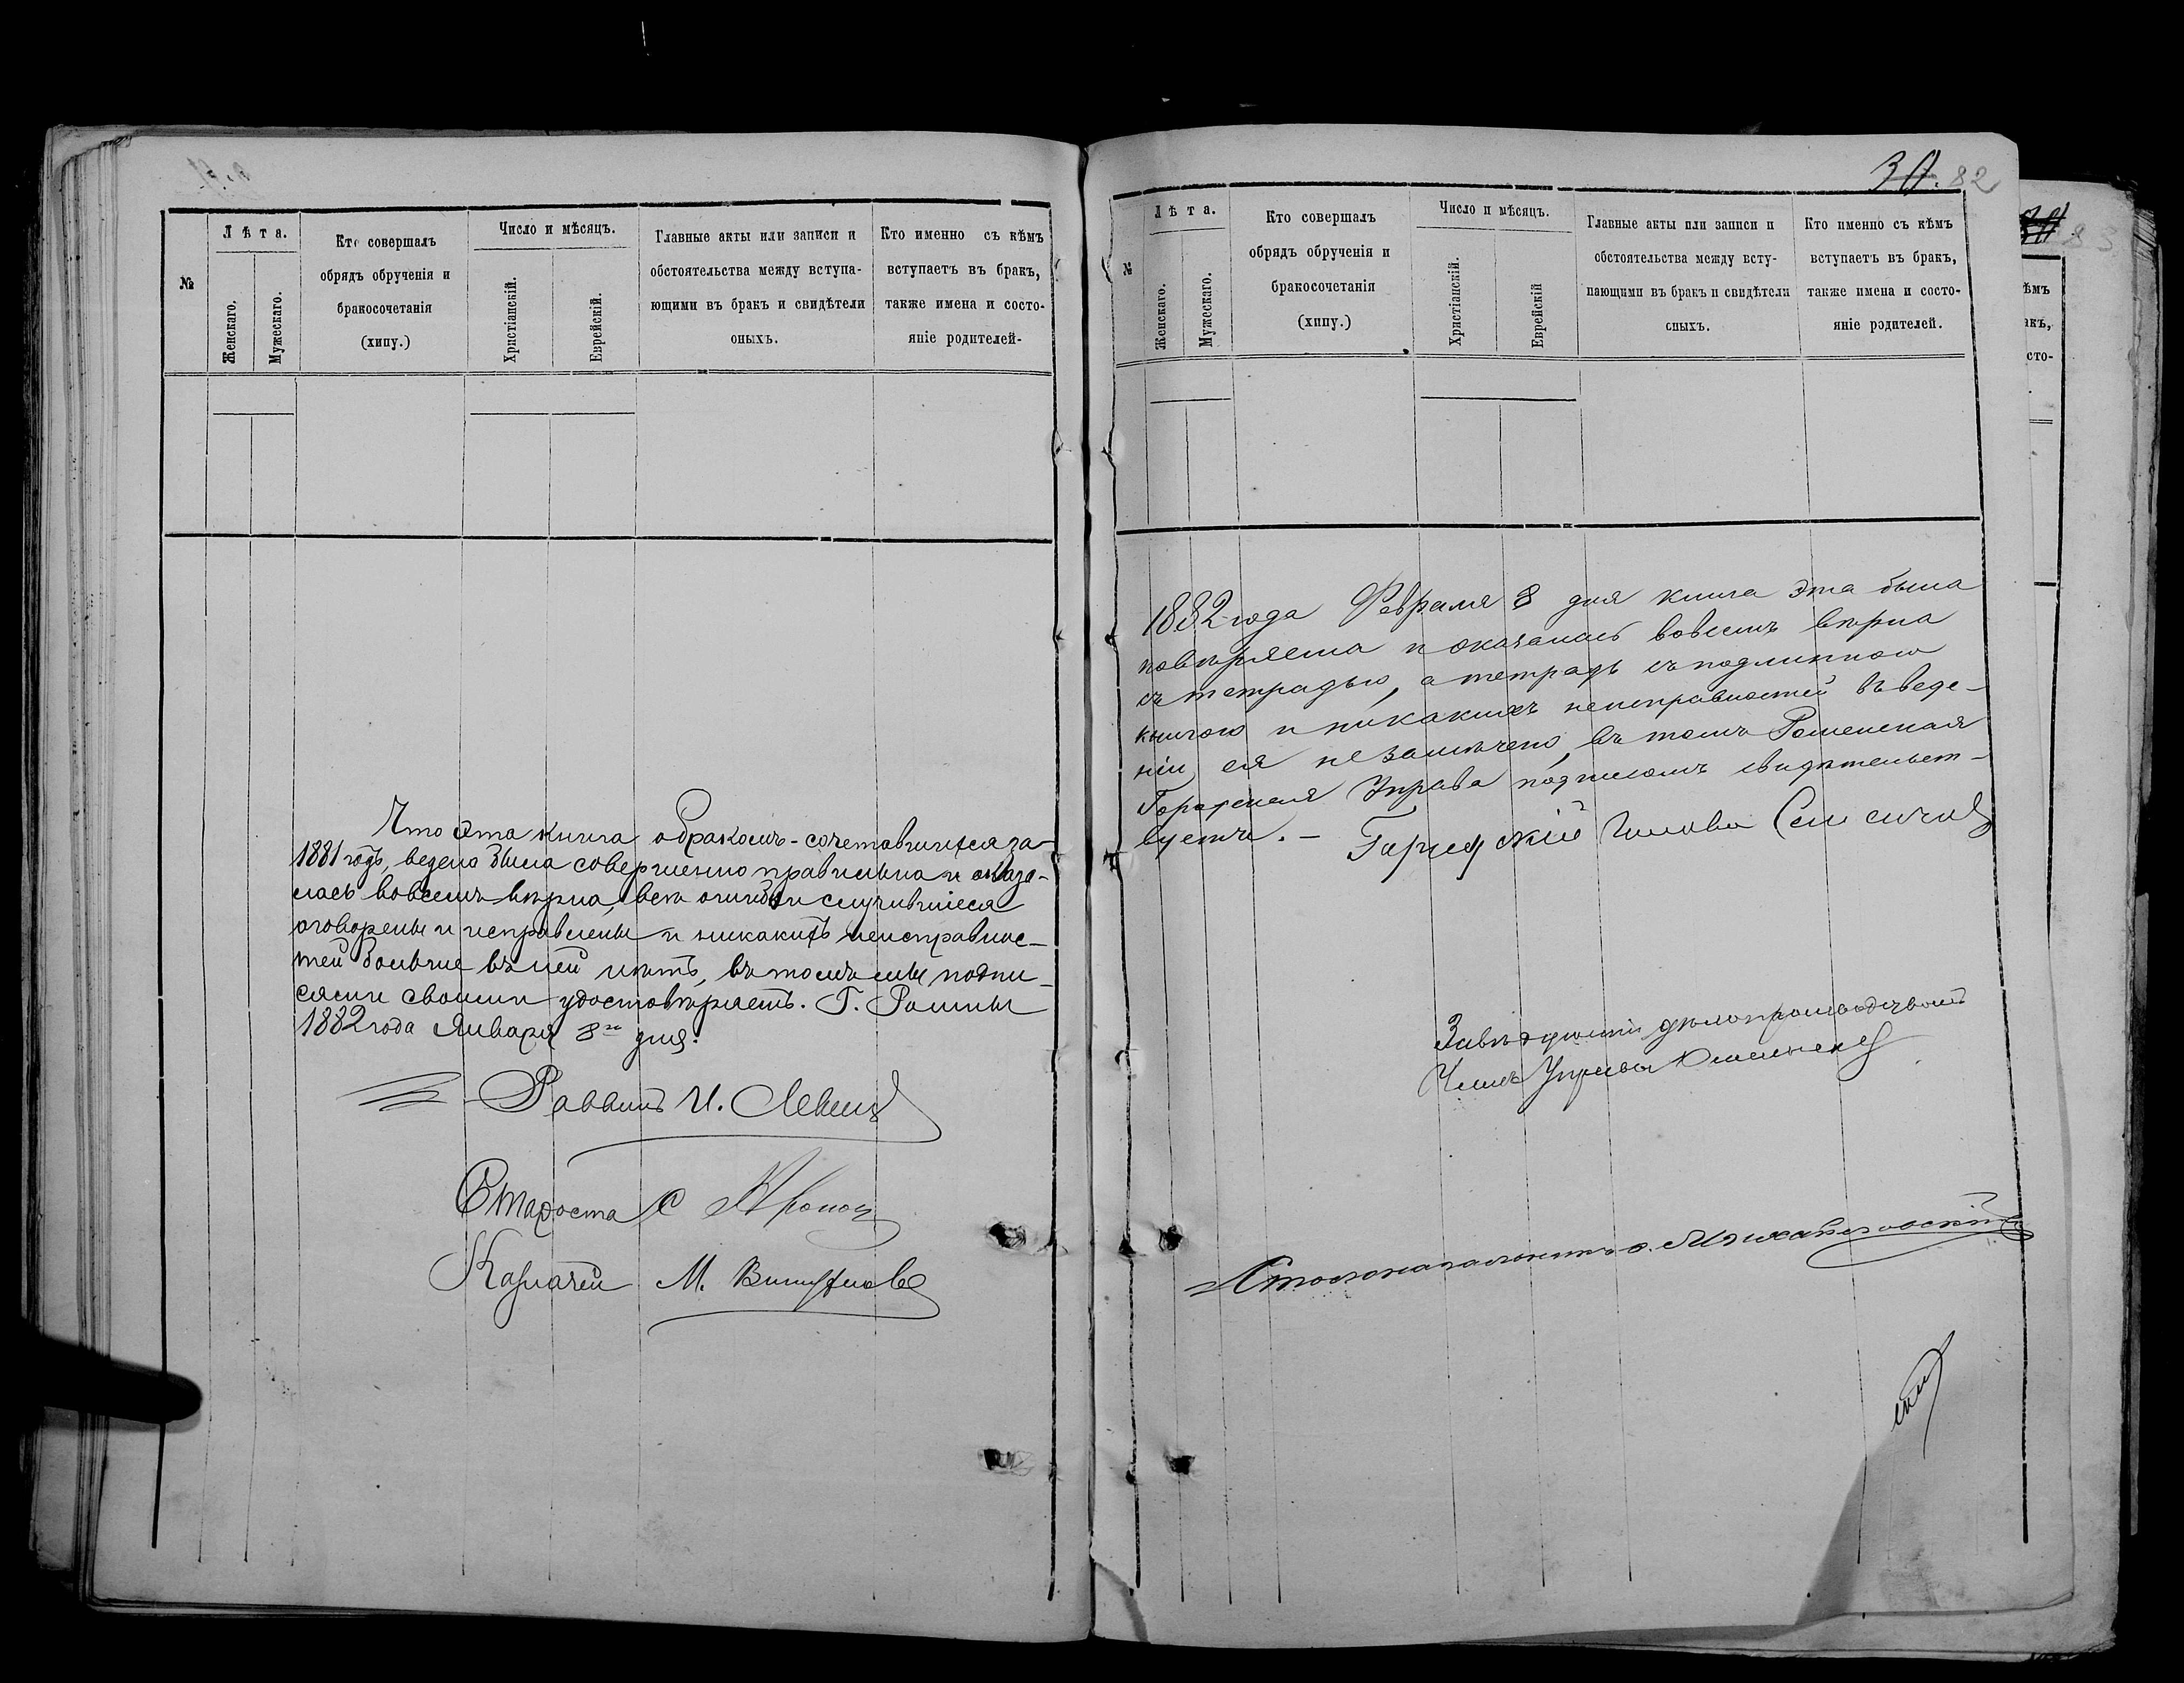 №
Лѣта.
Женскаго.
Мужескаго.
Кто совершалъ
обрядъ обрученія и
бракосочетанія
(хипу.)
Число и мѣсяцъ.
Христіанскій.
Еврейскій.
Главные акты или записи и
обстоятельства между вступа-
ющими въ бракъ и свидѣтели
оныхъ.
Кто именно съ кѣмъ
вступаетъ въ бракъ,
также имена и состо-
яніе родителей-
Что эта книга о бракомъ-сочетавшихся за-
1881 годъ, ведена была совершенно правильна и оказа-
лась вовсемъ вѣрна, всѣ ошибки случившіеся
оговорены и исправлены и никакихъ неисправнос-
тей больше въ ней нѣтъ, въ томъ мы подпи-
сями своими удостовѣряетъ. Г. Ромны
1882 года Января 8го дня.
Раввинъ И. Левинъ
Староста С
Казначей М.
82
№
Лѣта.
Женскаго.
Мужескаго.
Кто совершалъ
обрядъ обрученія и
бракосочетанія
(хипу.)
Число и мѣсяцъ.
Христіанскій.
Еврейскій
Главные акты или записи и
обстоятельства между всту-
пающими въ бракъ и свидѣтели
оныхъ.
Кто именно съ кѣмъ
вступаетъ въ бракъ,
также имена и состо-
яніе родителей.
1882 года Февраля 8 дня книга эта была
повѣряема и оказалась вовсемъ вѣрна
съ тетрадью, а тетрадь съ подлинною
книгою и никакихъ неисправностей въ веде-
ніи ея не замѣчено, въ томъ Роменская
Городская Управа подписомъ свидѣтельст-
вуетъ. – Городской Голова
Завѣдующій дѣлопроизводствомъ
Членъ Управы
Столоначальникъ
83
ѣмъ
акъ,
сто-